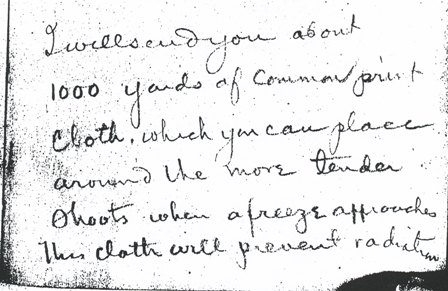 I will send you about
1000 yards of common print
cloth, which you can place
around the more tender
shoots when a freeze approaches
This cloth will prevent radiation